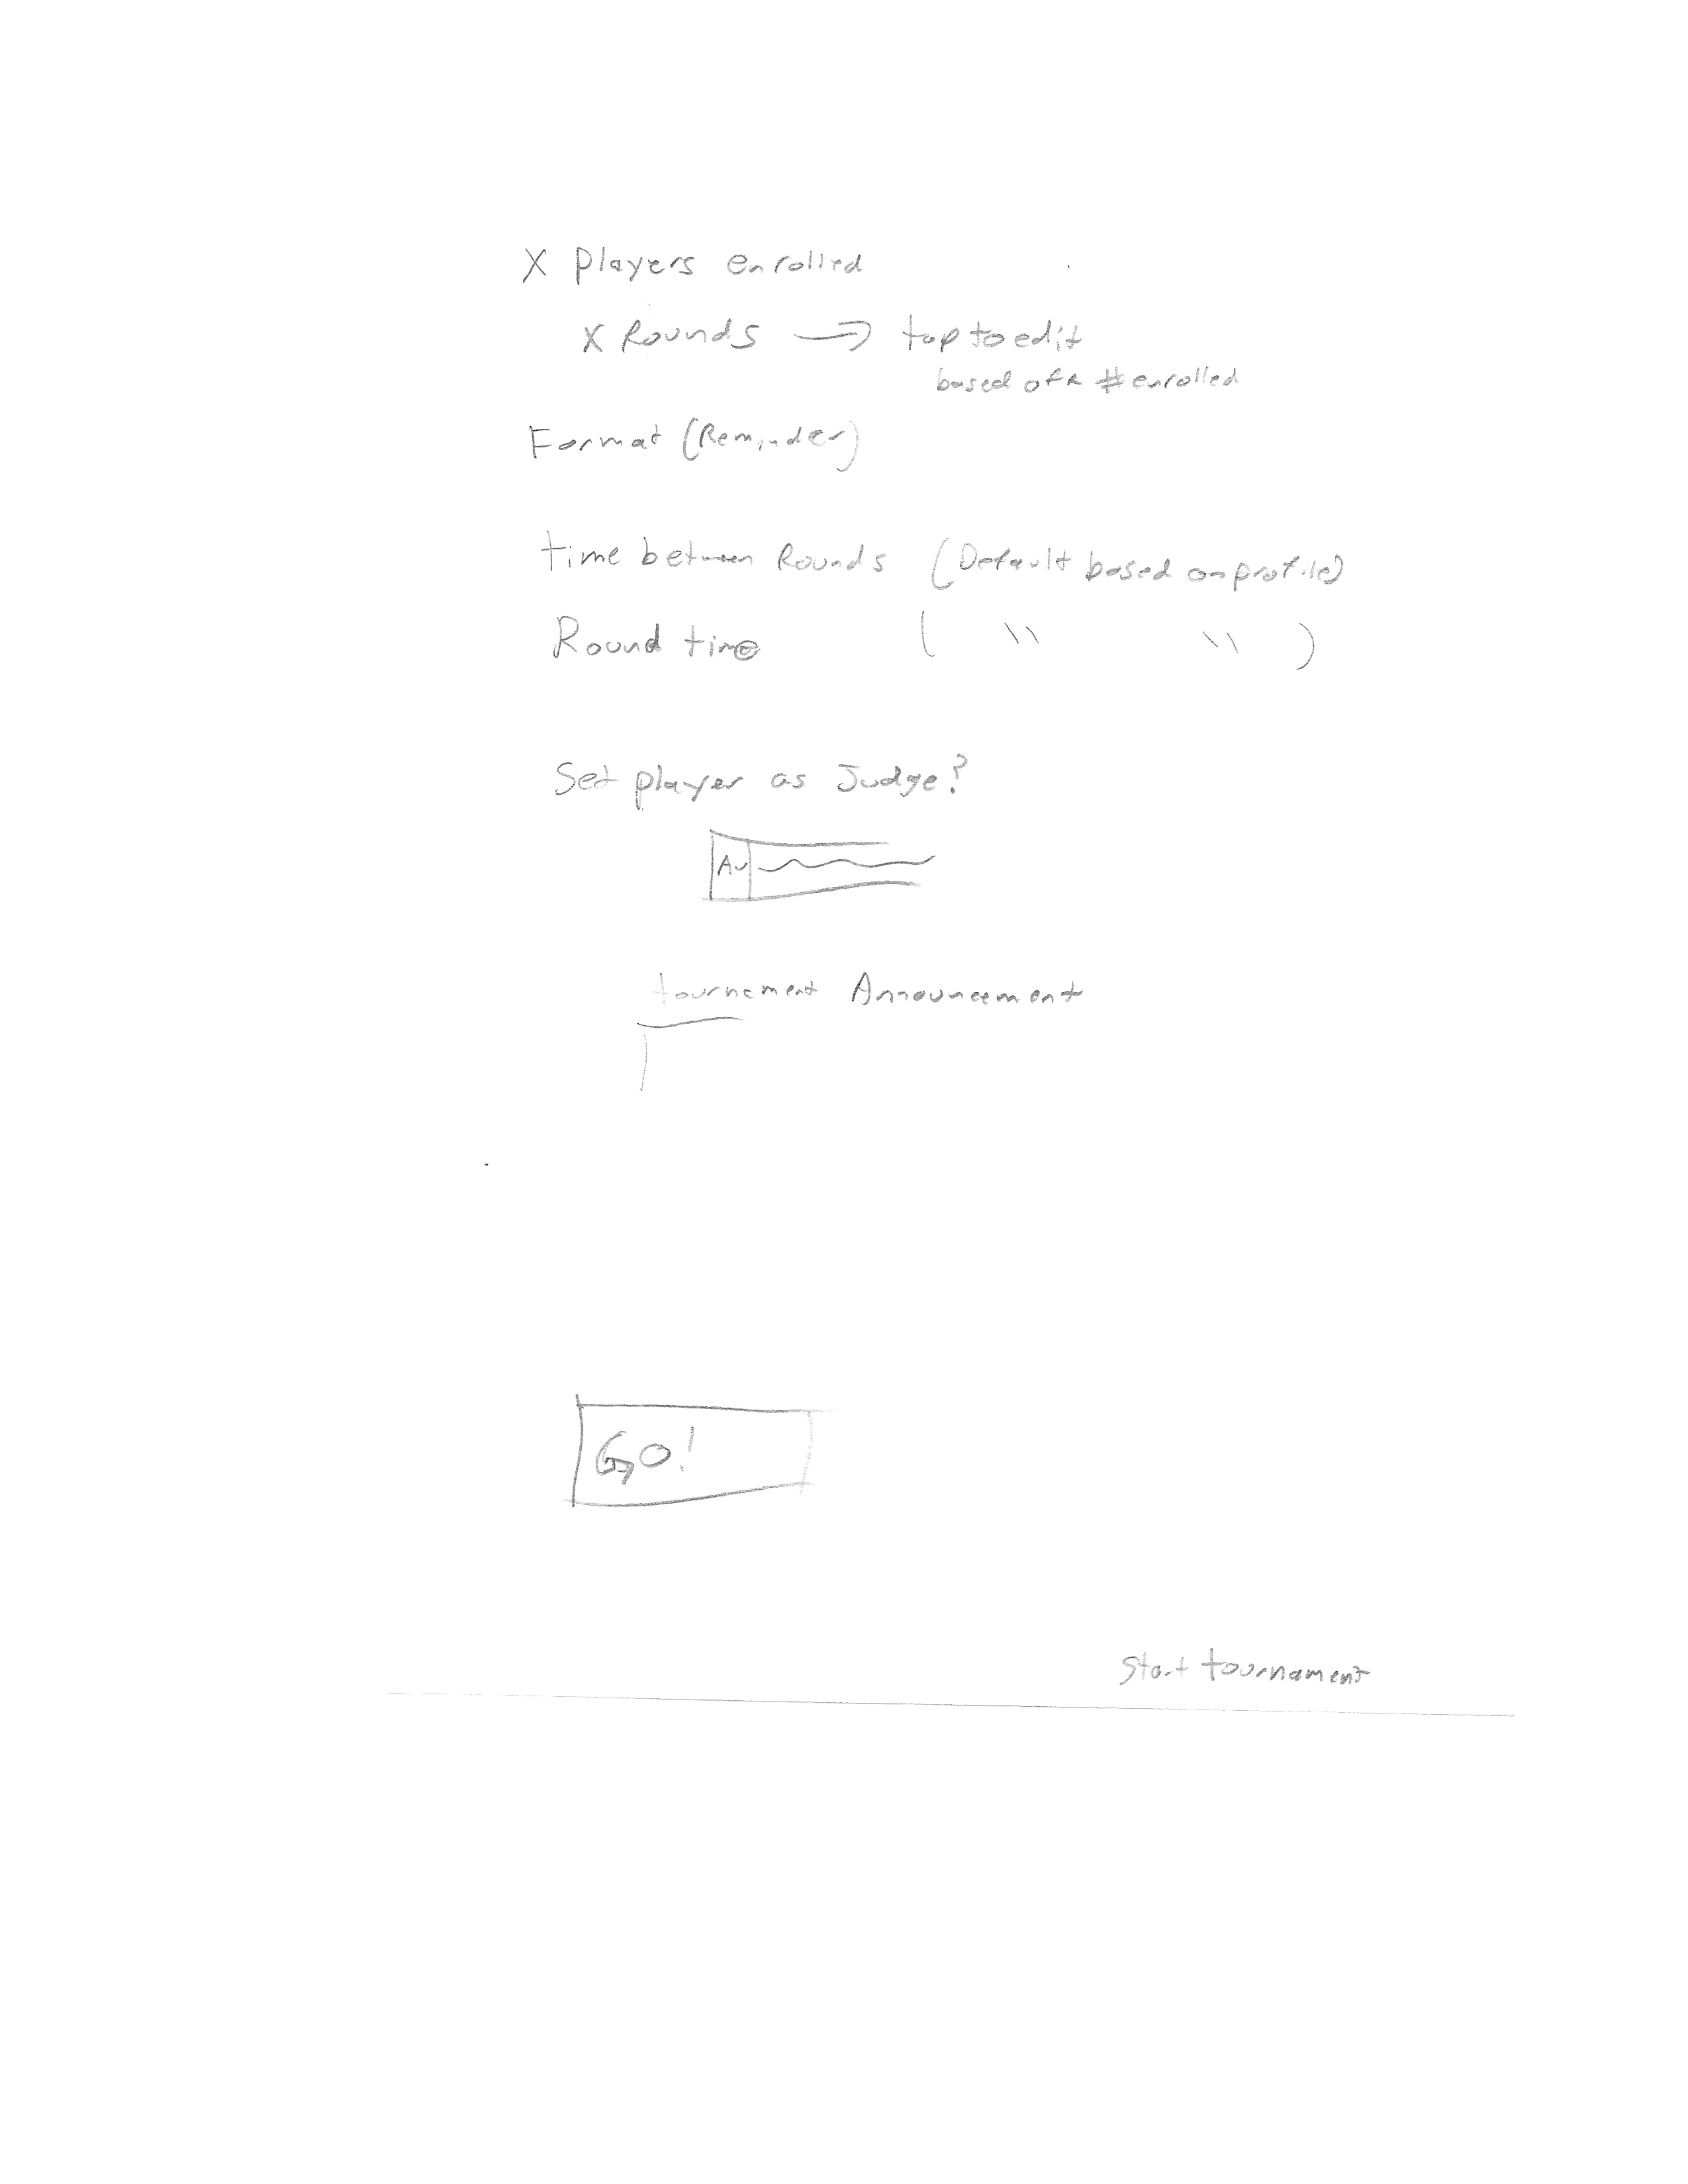 X Players enrolled
X Rounds → tap to edit
based off # enrolled
Format (Reminder)
time between Rounds (Default based on profile)
Round time ( \\ \\ )
Set player as Judge?
Av
tournement Announcement
GO!
Start tournament